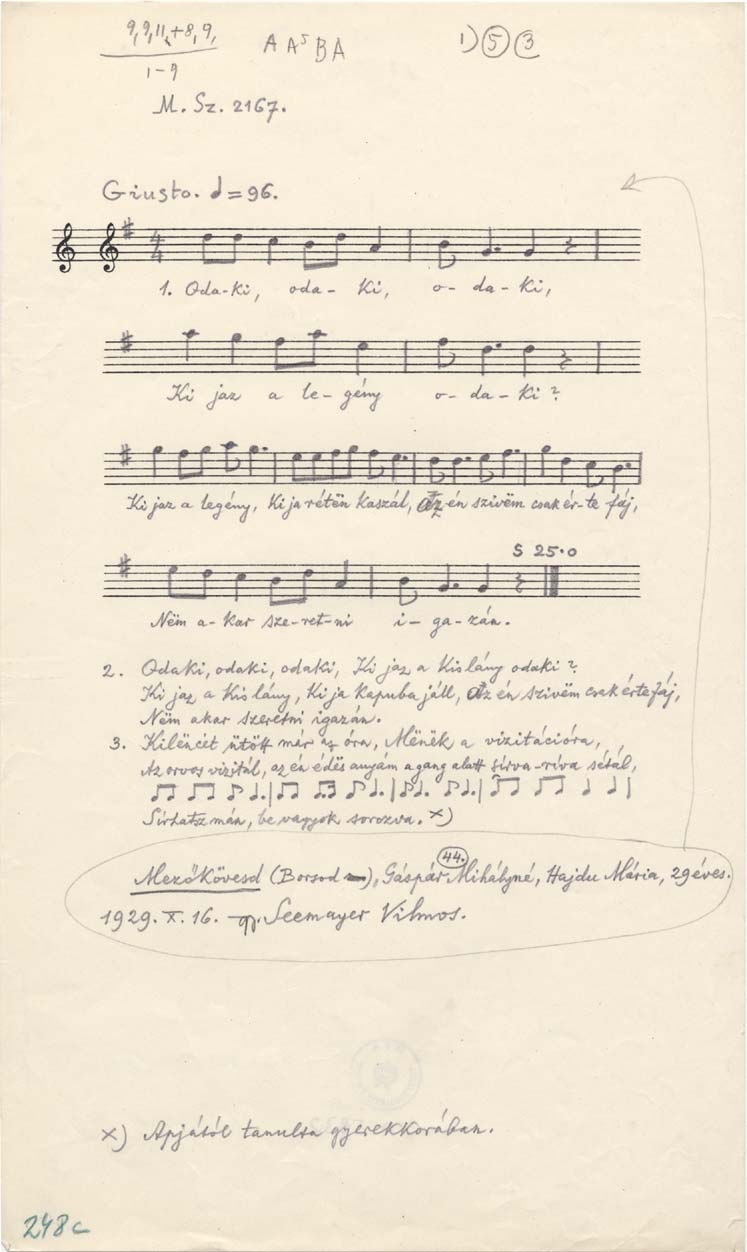 9, 9, 11,+8, 9,
1-9
A A⁵ B A
1) 5 3
M. Sz. 2167.
Giusto. = 96.
4
4
1. Oda-ki, oda-ki, o-da-ki,
Ki jaz a le-gény o-da-ki?
Ki jaz a legény, Ki ja rétën kaszál, Az én szivëm csak ér-te fáj,
S 25.0
Nëm a-kar sze-ret-ni i-ga-zán.
2. Odaki, odaki, odaki, Ki jaz a kislány odaki?
Ki jaz a kislány, Ki ja kapuba jáll, Az én szivëm csak érte fáj,
Nëm akar szeretni igazán.
3. Kilëncet ütött már az óra, Mënëk a vizitációra,
Az orvos vizitál, az én édës anyám a gang alatt sirva-riva sétál,
Sirhatsz mán, be vagyok sorozva. x)
Mezőkövesd (Borsod), Gáspár Mihályné, Hajdu Mária, 29 éves.
44.
1929. X. 16. Seemayer Vilmos.
x) Apjától tanulta gyerekkorában.
248c